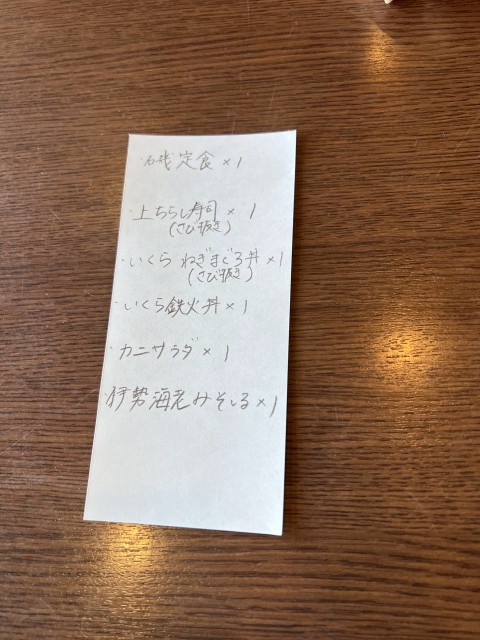 ・磯定食×1
・上ちらし寿司×1
(さび抜き)
・いくらねぎまぐろ丼×1
(さび抜き)
・いくら鉄火丼×1
・カニサラダ×1
・伊勢海老みそしる×1